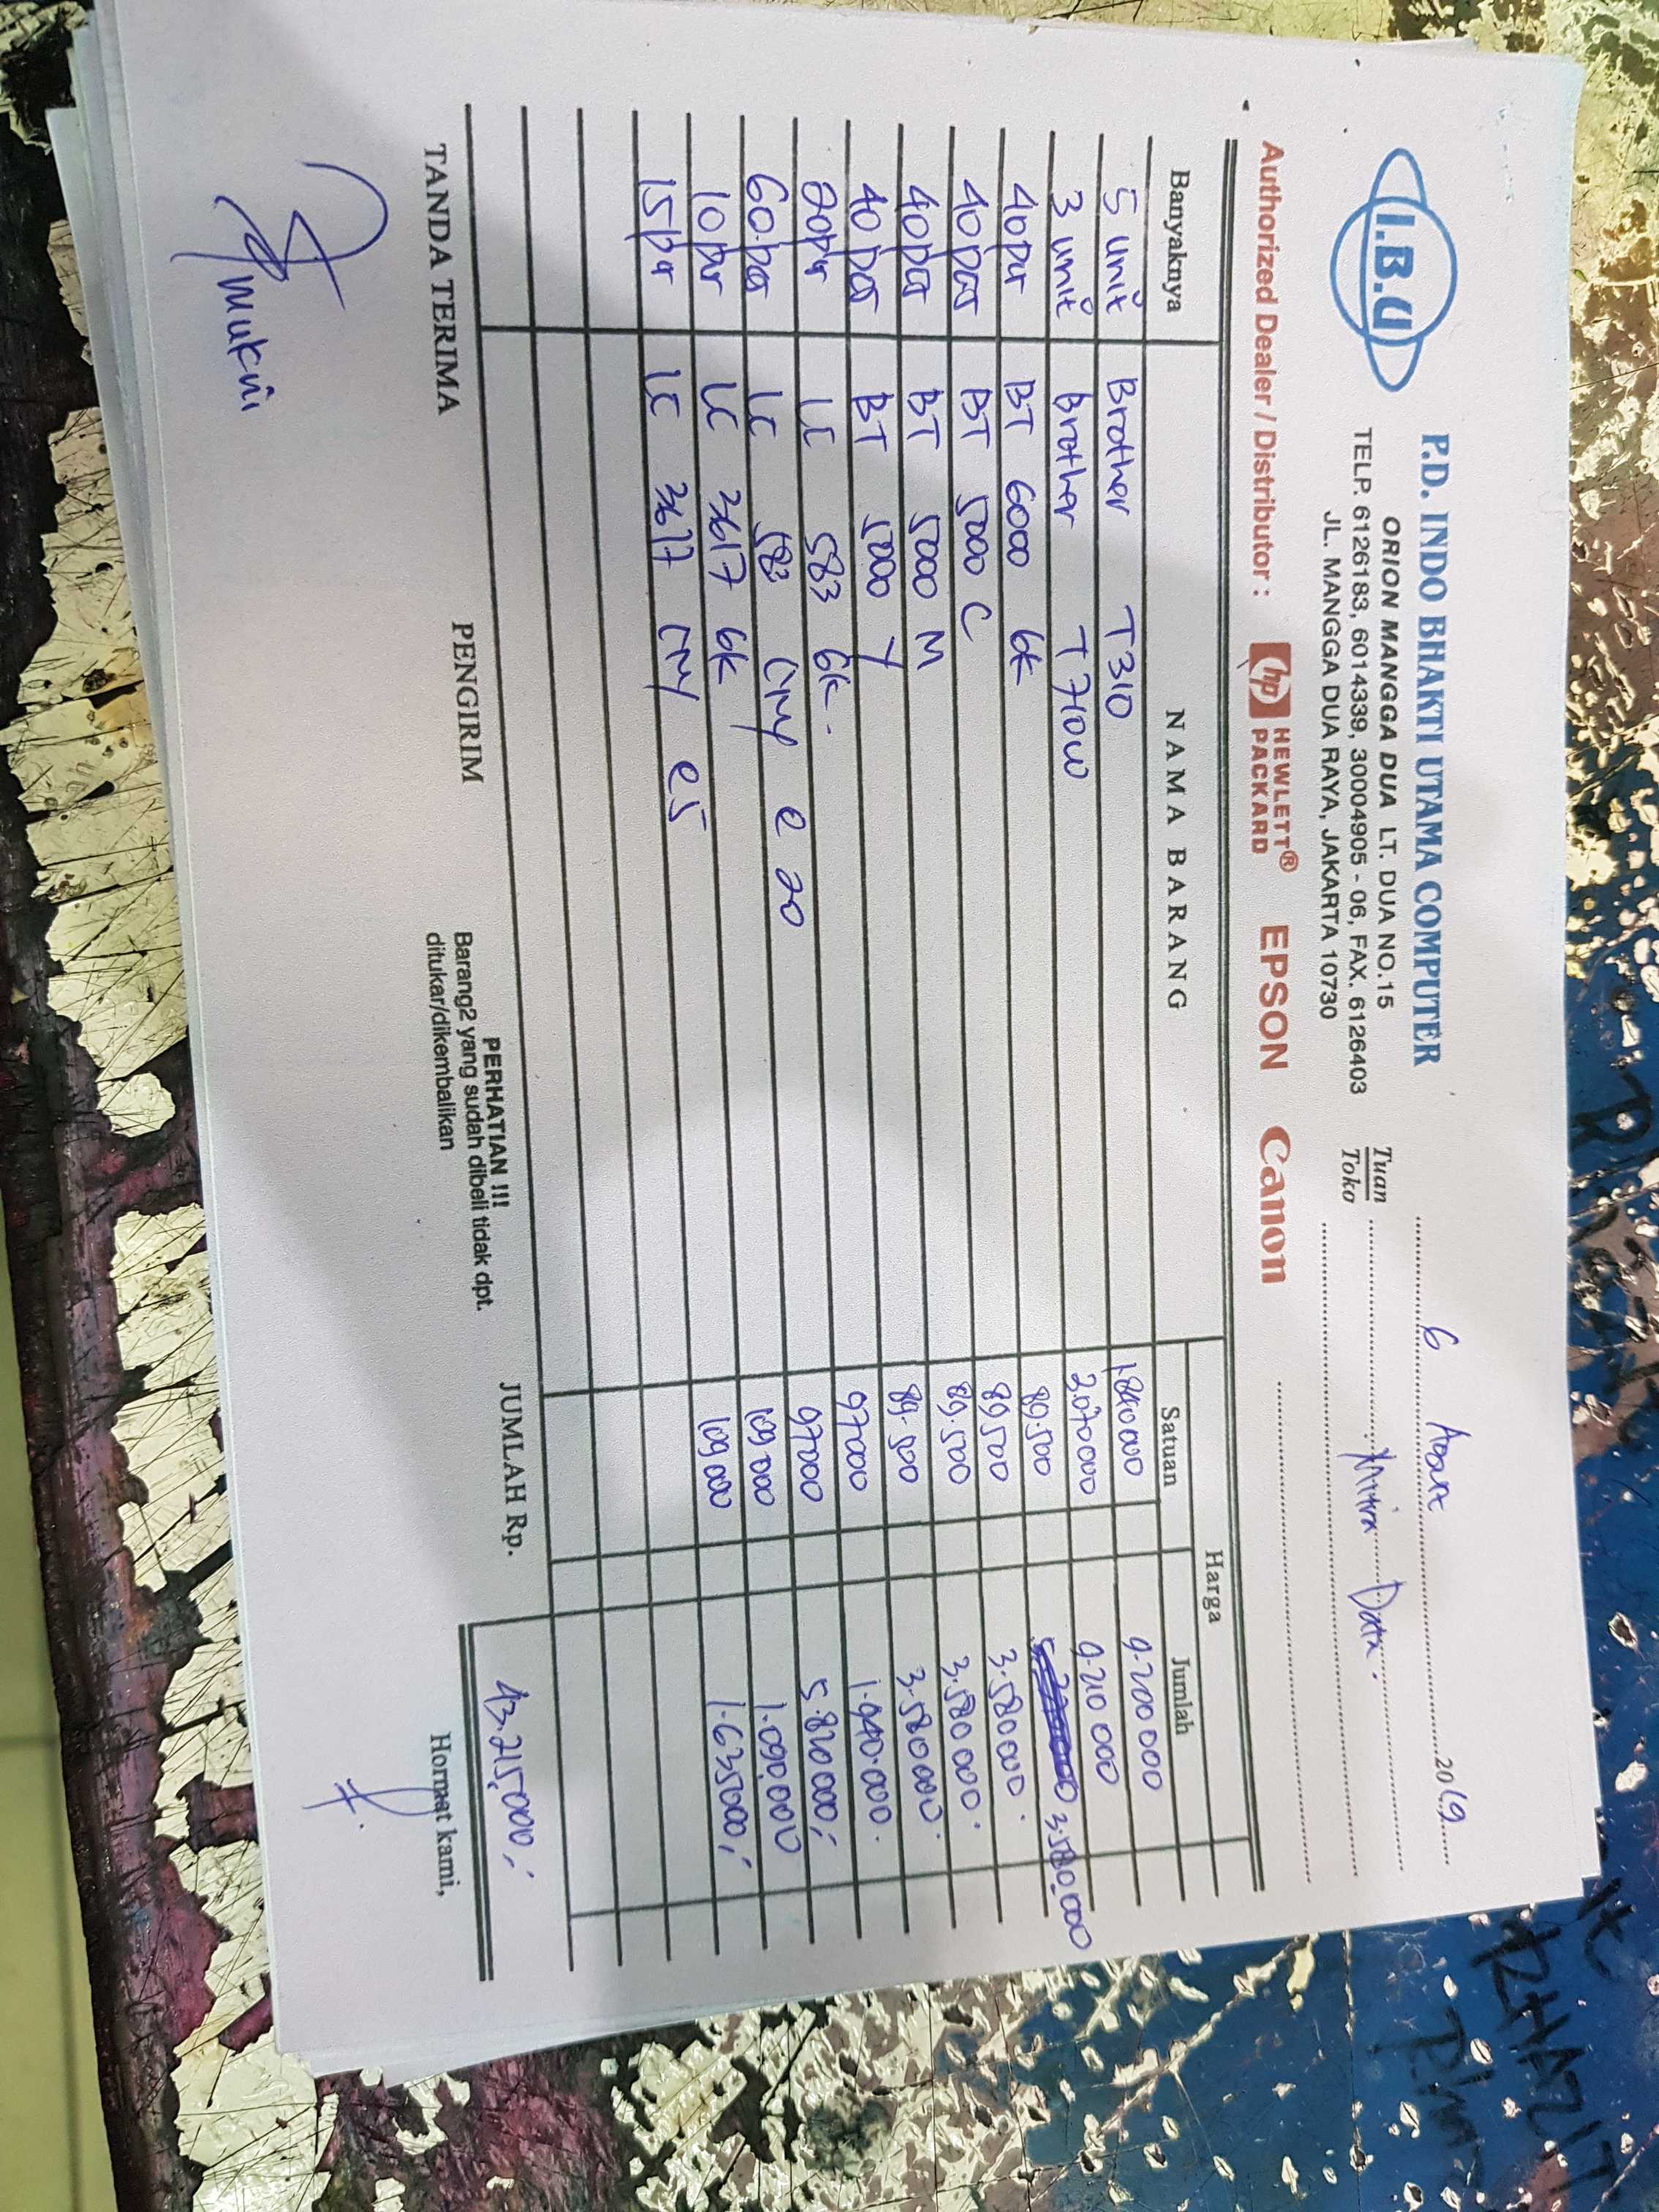 I.B.U
P.D. INDO BHAKTI UTAMA COMPUTER
ORION MANGGA DUA LT. DUA NO.15
TELP. 6126183, 6014339, 30004905 - 06, FAX. 6126403
JL. MANGGA DUA RAYA, JAKARTA 10730
6 2019
Tuan
Toko
Mitra Data.
Authorized Dealer / Distributor : hp HEWLETT® PACKARD EPSON Canon
Banyaknya NAMA BARANG Harga
Satuan Jumlah
5 unit Brother T310 1.840000 9.200000
3 unit Brother T710W 3.070000 9.210000
40 pcs BT 6000 bk 89.500 3.580.000
40 pcs BT 5000 C 89.500 3.580000.
40 pcs BT 5000 M 89.500 3.580000.
40 pcs BT 5000 Y 89.500 3.580000.
20 pcs LC 583 bk. 97000 1.940.000.
60 pcs LC 583 cmy @ 20 97000 5.820000,-
10 pcs LC 3617 bk 109000 1.090.000
15 pcs LC 3617 cmy @5 109000 1.635000,-
TANDA TERIMA PENGIRIM
PERHATIAN !!!
Barang2 yang sudah dibeli tidak dpt.
ditukar/dikembalikan
JUMLAH Rp. 43.215.000,-
Hormat kami,
mukni